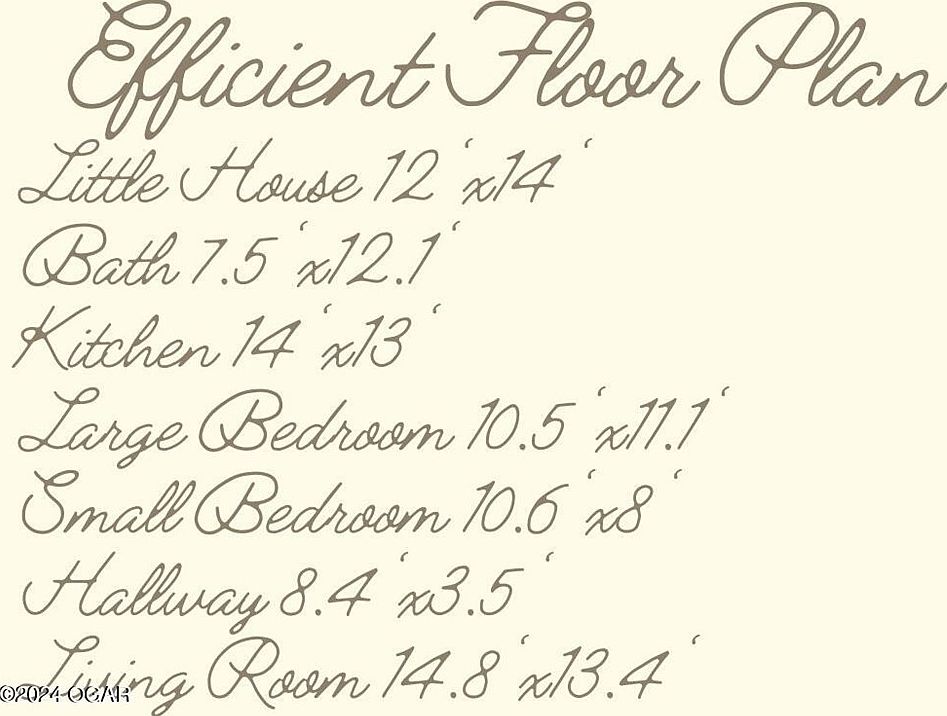 Efficient Floor Plan
Little House 12‘x14‘
Bath 7.5‘x12.1‘
Kitchen 14‘x13‘
Large Bedroom 10.5‘x11.1‘
Small Bedroom 10.6‘x8‘
Hallway 8.4‘x3.5‘
Living Room 14.8‘x13.4‘
©2024 OGAR